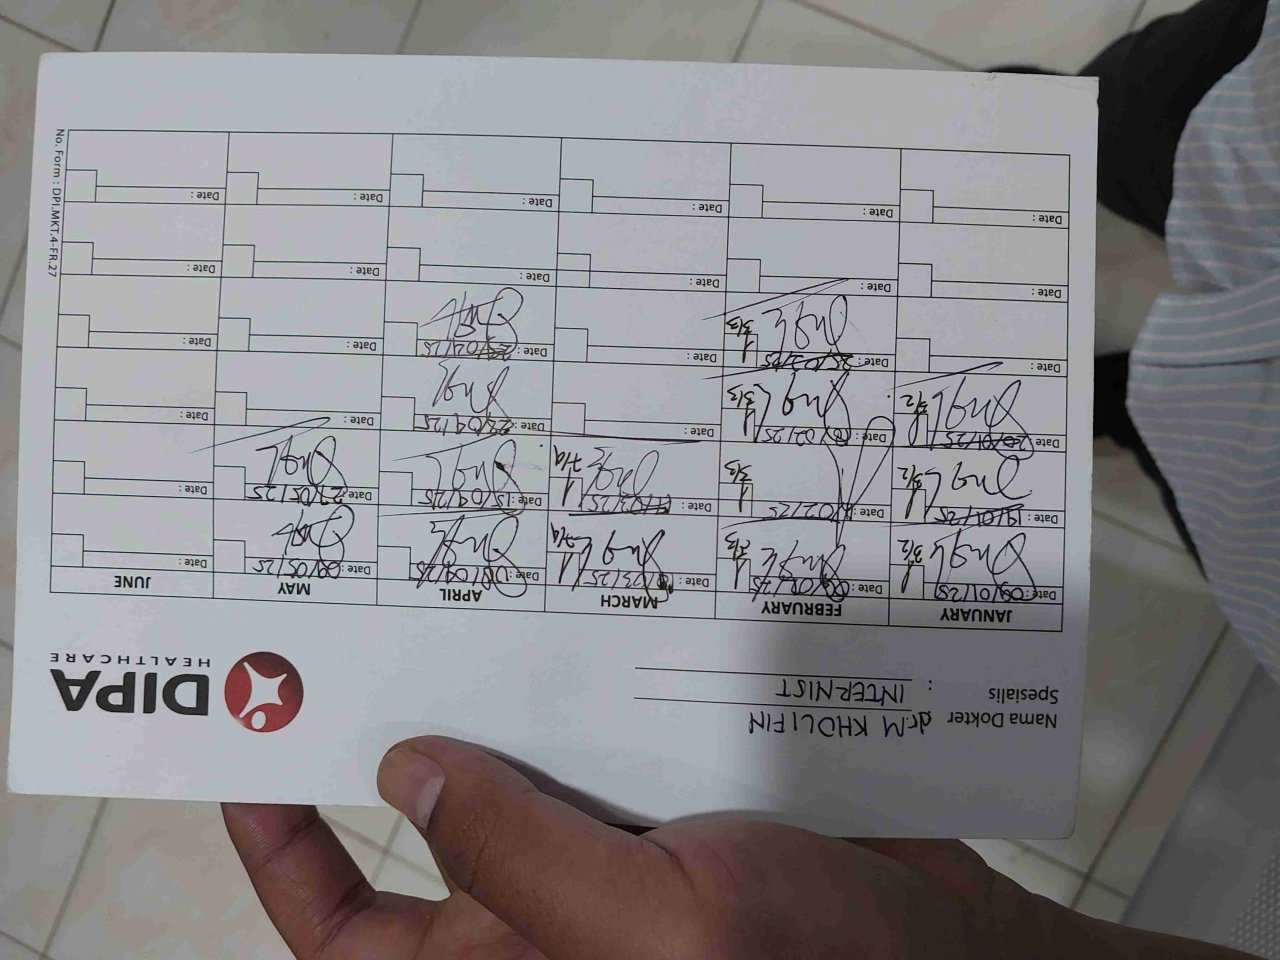 Nama Dokter dr.M KHOLIFIN
Spesialis : INTERNIST
DIPA
HEALTHCARE
JANUARY FEBRUARY MARCH APRIL MAY JUNE
Date : 09/01/25 Date : Date : Date : Date : 09/05/25 Date :
3/2 3/3 7/4
Date : 19/01/25 Date : Date : Date : 15/04/25 Date : 27/05/25 Date :
3/2 3/3 7/4
Date : Date : Date : Date : 22/04/25 Date : Date :
3/2 3/3
Date : Date : 25/02/25 Date : Date : Date : Date :
3/3
Date : Date : Date : Date : Date : Date :
Date : Date : Date : Date : Date : Date :
No. Form : DPI.MKT.4-FR.27